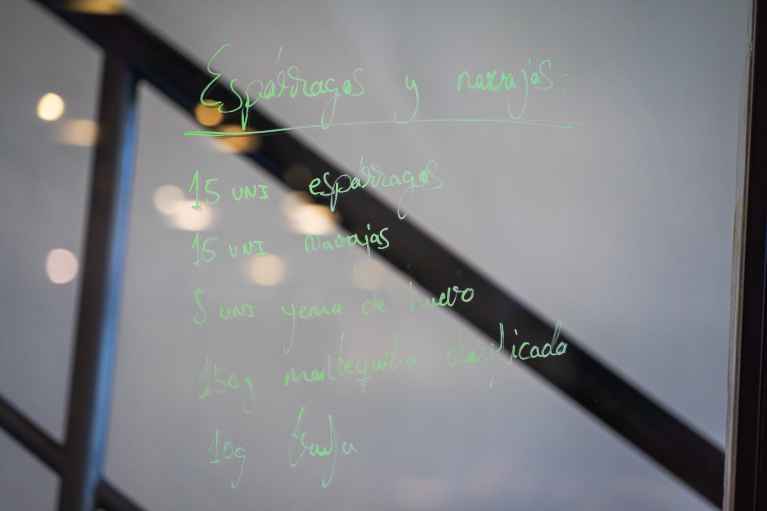 Espárragos y naranjas.
15 UNI espárragos
15 UNI Naranjas
5 UNI yema de huevo
150g mantequilla clarificada
10g trufa